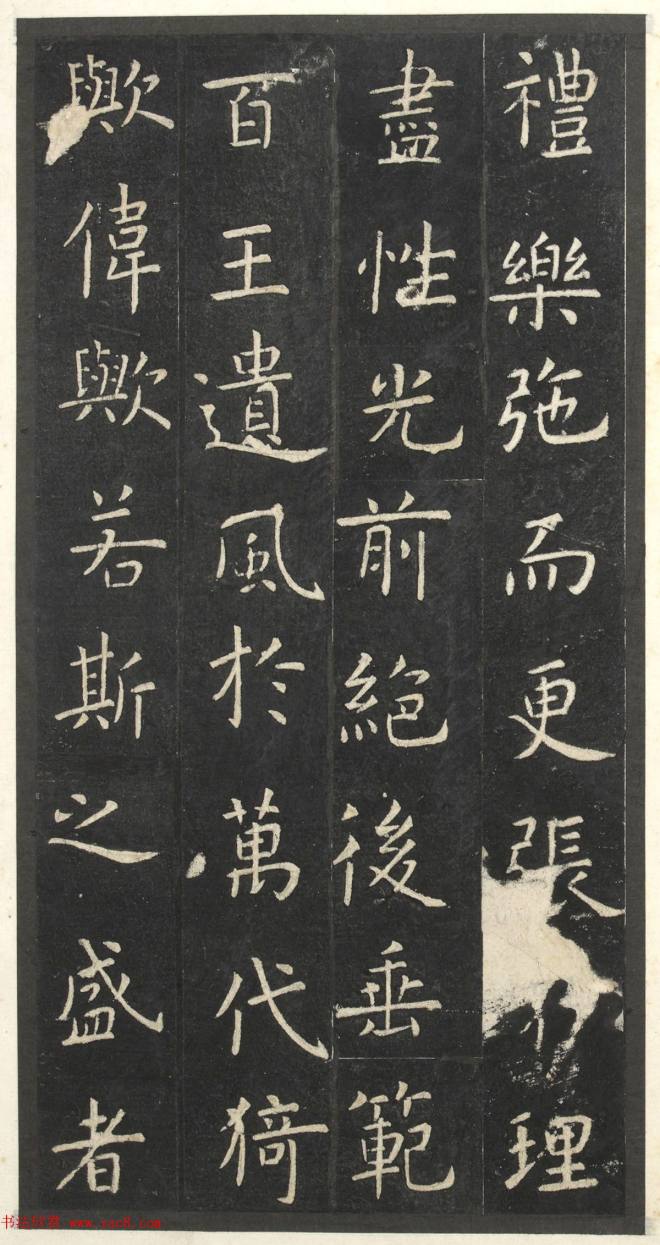 禮樂弛而更張理
盡性光前絕後垂範
百王遺風於萬代猗
歟偉歟若斯之盛者
书法欣赏 www.yac8.com